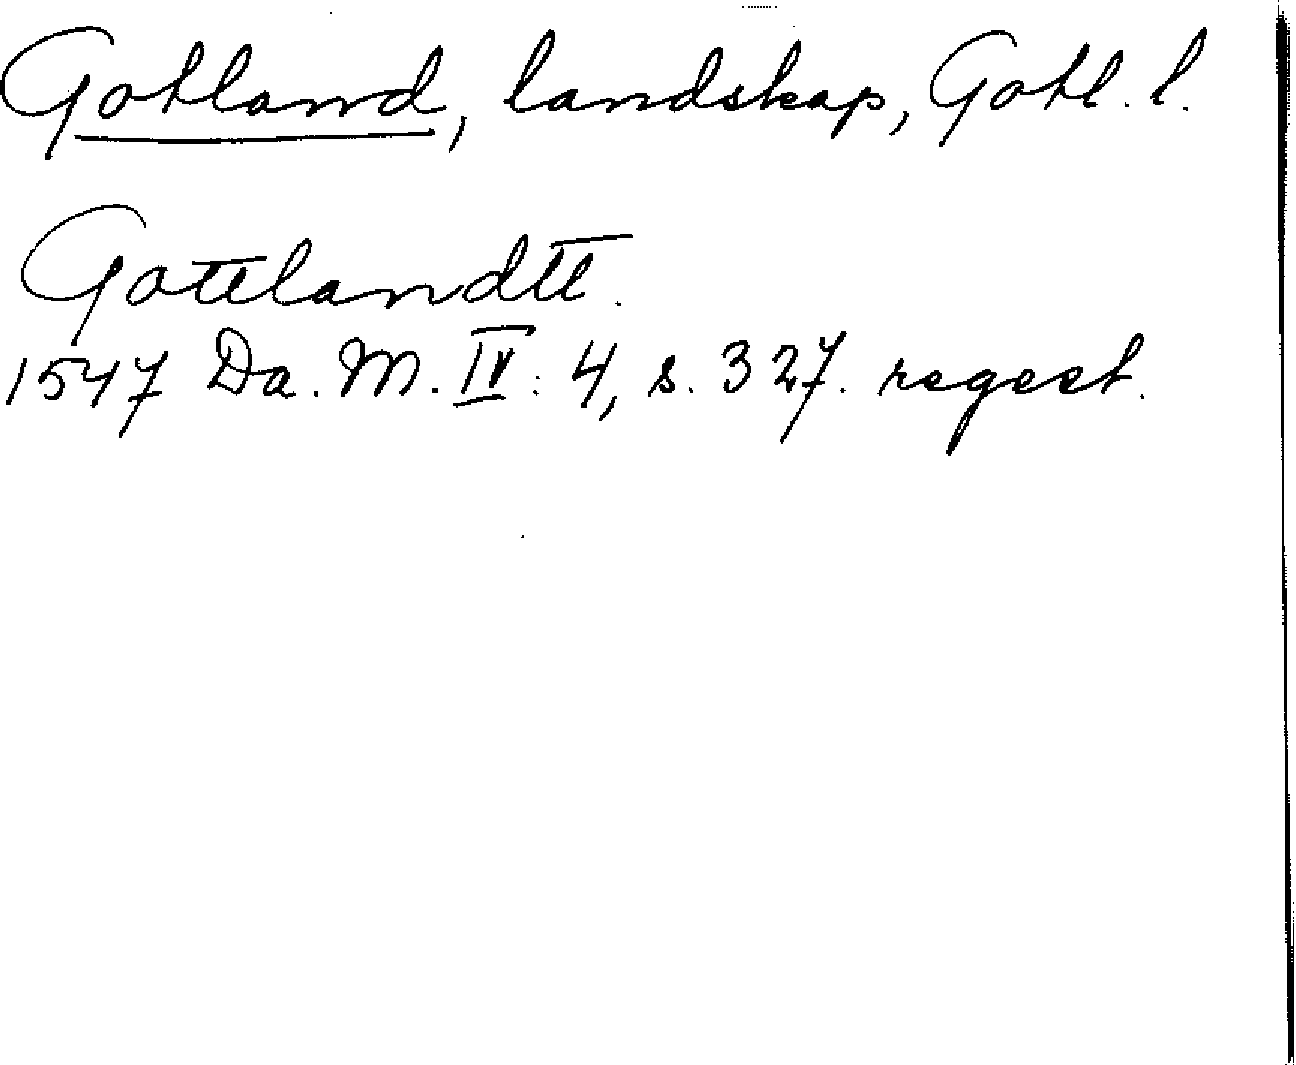 Gotland, landskap, Gotl. l.
Gottlandtt.
1547 Da. M. IV: 4, s. 327. regest.